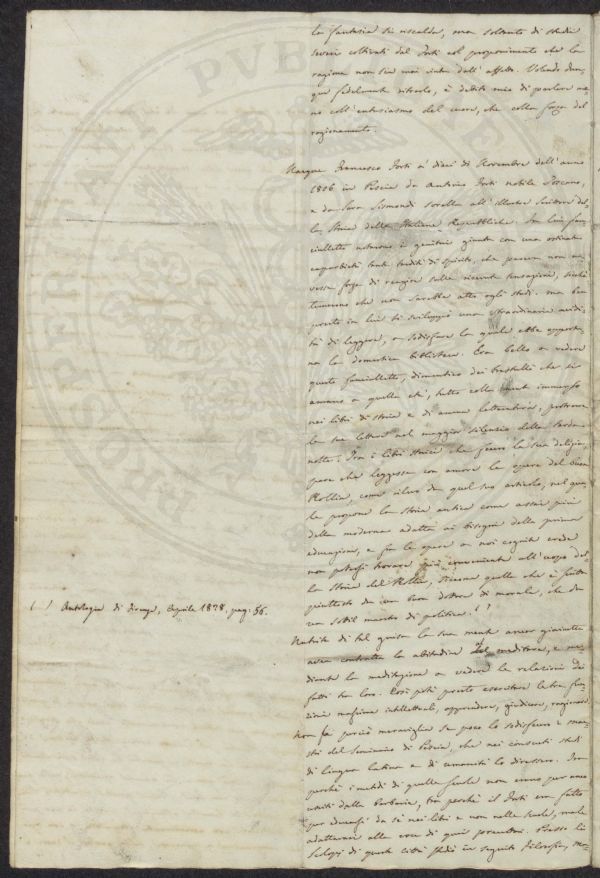 la fantasia si riscalda, ma soltanto di studi
severi coltivati dal Forti col proponimento che la
ragione non sia mai vinta dall'affetto. Volendo dun-
que fedelmente ritrarlo, è debito mio di parlare me-
no coll'entusiasmo del cuore, che colla forza del
ragionamento.
Nacque Francesco Forti a' dieci di Novembre dell'anno
1806 in Pescia da Antonio Forti nobile Toscano,
e da Sara Sismondi sorella all'illustre Scrittore del-
la Storia delle Italiane Repubbliche. In lui fan-
ciulletto notarono i genitori giunta con una ostinata
tanta di spirito, che pareva non a-
vesse forza di reagire sulle ricevute sensazioni, sicchè
temerono che non sarebbe atto agli studi. Ma ben
presto in lui si sviluppò una straordinaria avidi-
tà di leggere, a sodisfare la quale ebbe opportu-
na la domestica biblioteca. Era bello a vedere
questo fanciulletto, dimentico dei trastulli che si
amano a quella età, tutto colla mente immerso
nei libri di storia e di amena letteratura, protrarre
le sue letture nel maggior silenzio della tarda
notte. Fra i libri storici che fecero la sua delizia,
pare che leggesse con amore le opere del buon
Rollin, come rilevo da quel suo articolo, nel qua-
le propone la storia antica come assai più
della moderna adatta ai bisogni della prima
educazione, e fra le opere a noi cognite crede
non potersi trovare più conveniente all'uopo del-
la Storia del Rollin, siccome quella che è fatta
piuttosto da un buon dottore di morale, che da
un sottil maestro di politica. ( )
( ) Antologia di Firenze, Aprile 1828, pag: 56.
Nutrita di tal guisa la sua mente ancor giovinetta
avea contratta la abitudine del meditare, e me-
diante la meditazione a vedere le relazioni dei
fatti tra loro. Così potè presto esercitare le tre fun-
zioni massime intellettuali, apprendere, giudicare, ragionare
Non fa perciò meraviglia se poco lo sodisfacero i mae-
stri del Seminario di Pescia, che nei consueti studi
di lingua latina e di umanità lo diressero. Fra
perchè i metodi di quelle scuole non erano per anco
usciti dalla barbarie, tra perchè il Forti era fatto
per educarsi da sè nei libri e non nelle scuole, male
adattavasi alla voce di quei precettori. Presso li
Scolopi di questa città studiò in seguito Filosofia, ma-